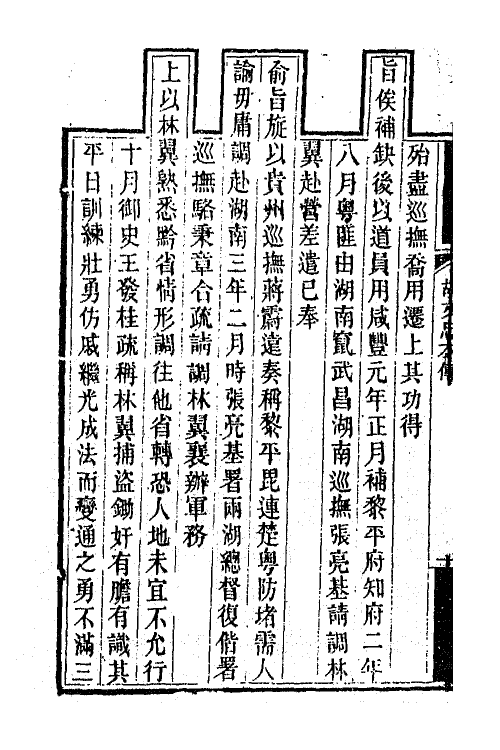 殆盡巡撫喬用遷上其功得
旨俟補缺後以道員用咸豐元年正月補黎平府知府二年
八月粵匪由湖南竄武昌湖南巡撫張亮基請調林
翼赴營差遣已奉
俞旨旋以貴州巡撫蔣霨遠奏稱黎平毘連楚粵防堵需人
諭毋庸調赴湖南三年二月時張亮基署兩湖總督復偕署
巡撫駱秉章合疏請調林翼襄辦軍務
上以林翼熟悉黔省情形調往他省轉恐人地未宜不允行
十月御史王發桂疏稱林翼捕盜鋤奸有膽有識其
平日訓練壯勇仿戚繼光成法而變通之勇不滿三